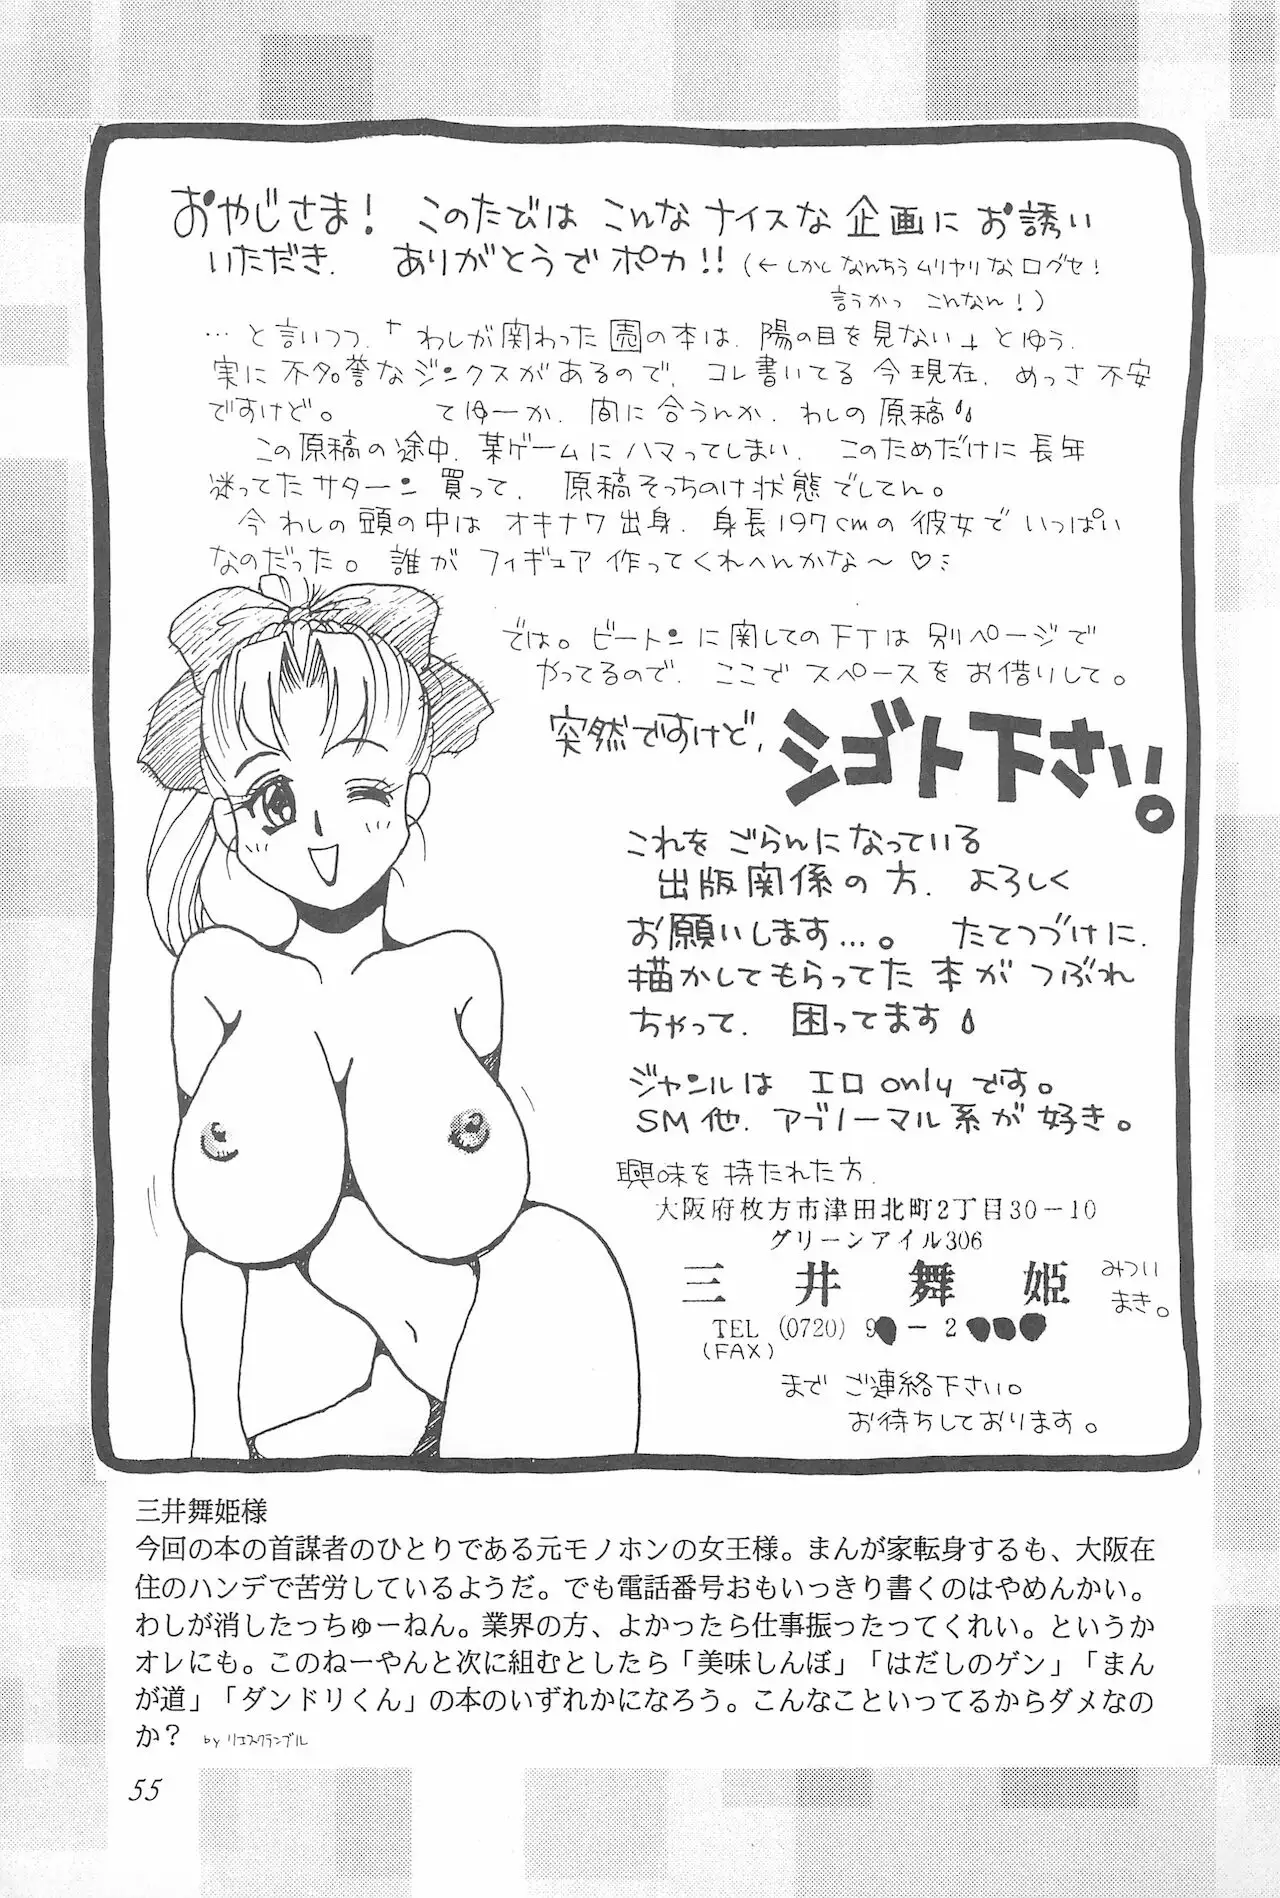 おやじさま！ このたびは こんな ナイスな 企画に お誘い
いただき. ありがとうでポカ!! (←しかし なんちう ムリヤリな 口グセ！
言うかっ こんなん！)
…と言いつつ.「わしが関わった 園の本は. 陽の目を見ない」とゆう.
実に 不名誉な ジンクスがあるので. コレ書いてる 今現在. めっさ 不安
ですけど。 てゆーか. 間に合うんか. わしの 原稿
この原稿の途中. 某ゲームに ハマってしまい. このためだけに 長年
迷ってた サターン 買って. 原稿そっちのけ状態でしてん。
今わしの 頭の中は オキナワ出身. 身長197cmの彼女で いっぱい
なのだった。 誰か フィギュア 作ってくれへんかな〜♡
では。 ビートンに関しての FTは 別ページで
やってるので. ここで スペースを お借りして。
突然ですけど, シゴト下さい。
これを ごらんになっている
出版関係の方. よろしく
お願いします…。 たてつづけに.
描かしてもらってた 本が つぶれ
ちゃって. 困ってます
ジャンルは エロ only です。
SM他. アブノーマル系が 好き。
興味を 持たれた方.
大阪府枚方市津田北町2丁目30-10
グリーンアイル306
三井舞姫 みつい
まき。
TEL (0720) 9 - 2
(FAX)
まで ご連絡下さい。
お待ちしております。
三井舞姫様
今回の本の首謀者のひとりである元モノホンの女王様。まんが家転身するも、大阪在
住のハンデで苦労しているようだ。でも電話番号おもいっきり書くのはやめんかい。
わしが消したっちゅーねん。業界の方、よかったら仕事振ったってくれい。というか
オレにも。このねーやんと次に組むとしたら「美味しんぼ」「はだしのゲン」「まん
が道」「ダンドリくん」の本のいずれかになろう。こんなこといってるからダメなの
か？ by リエスクランブル
55